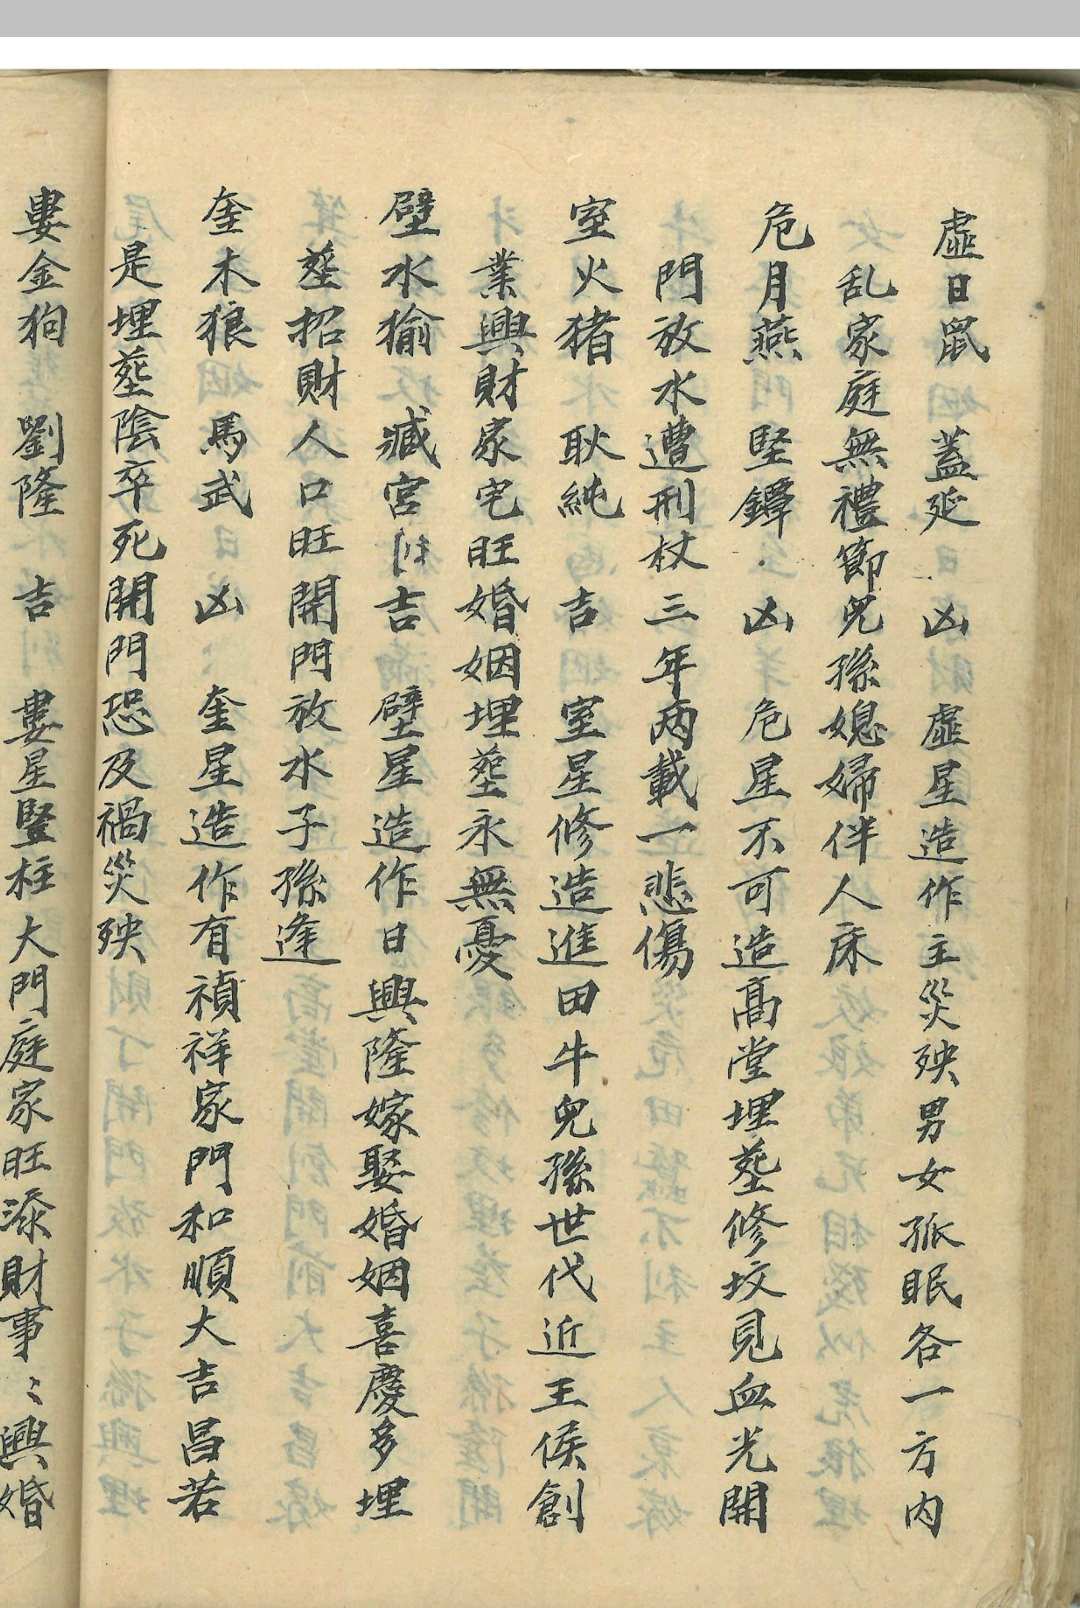 虛日鼠　蓋延　凶　虛星造作主災殃男女孤眠各一方内
乱家庭無禮節兒孫媳婦伴人床
危月燕　堅鐔　凶　危星不可造高堂埋塟修坟見血光開
門放水遭刑杖三年两載一悲傷
室火猪　耿純　吉　室星修造進田牛兒孫世代近王侯創
業興財家宅旺婚姻埋塟永無憂
壁水㺄　臧宮　吉　壁星造作日興隆嫁娶婚姻喜慶多埋
塟招財人口旺開門放水子孫逢
奎木狼　馬武　凶　奎星造作有禎祥家門和順大吉昌若
是埋塟陰卒死開門恐及禍災殃
婁金狗　劉隆　吉　婁星竪柱大門庭家旺添財事〻興婚